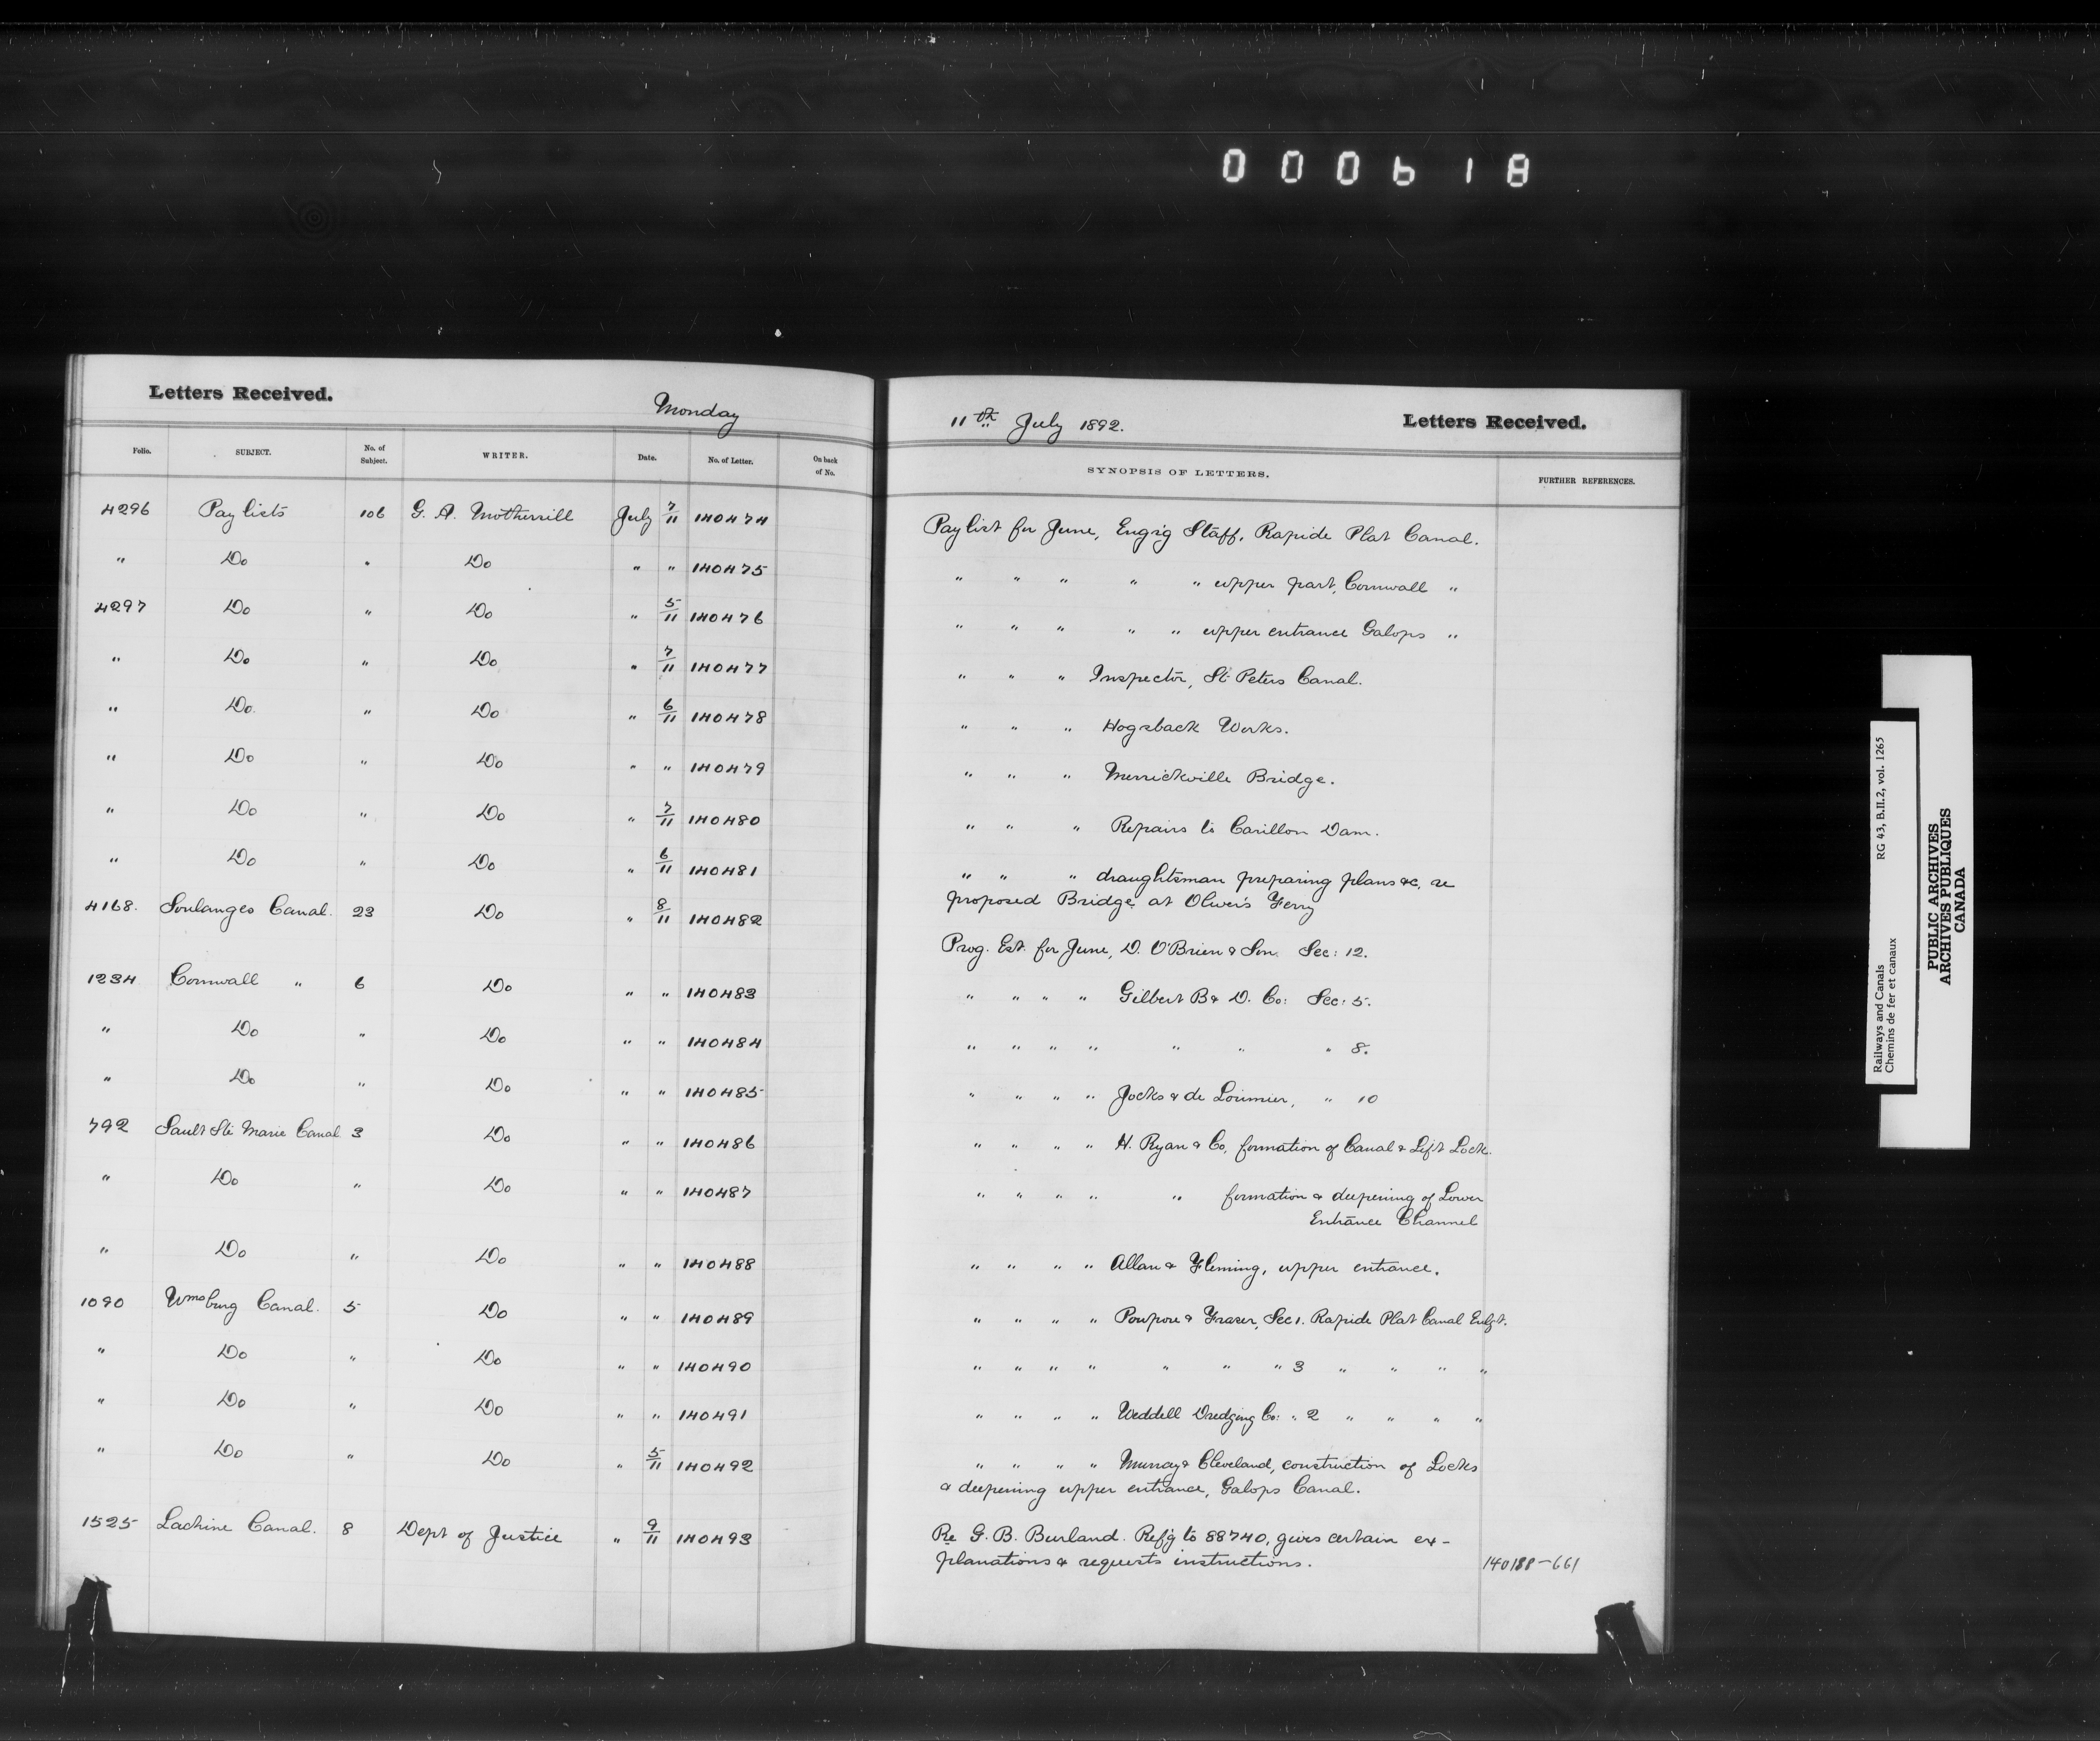 000618
Letters Received.
Monday
11th July 1892.
Letters Received.
Folio. SUBJECT. No. of Subject. WRITER. Date. No. of Letter. On back of No. SYNOPSIS OF LETTERS. FURTHER REFERENCES.
4296 Pay lists 106 G. A. Mothersill July 7/11 140474 Pay list for June, Eng'g Staff, Rapide Plat Canal.
" Do " Do " " 140475 " " " " " upper part, Cornwall "
4297 Do " Do " 5/11 140476 " " " " " upper entrance Galops "
" Do " Do " 7/11 140477 " " " Inspector, St. Peters Canal.
" Do " Do " 6/11 140478 " " " Hogsback Works.
" Do " Do " " 140479 " " " Merrickville Bridge.
" Do " Do " 7/11 140480 " " " Repairs to Carillon Dam.
" Do " Do " 6/11 140481 " " " draughtsman preparing plans &c, re
proposed Bridge at Oliver's Ferry
4168. Soulanges Canal. 23 Do " 8/11 140482 Prog. Est. for June, D. O'Brien & Son. Sec: 12.
1234 Cornwall " 6 Do " " 140483 " " " " Gilbert B & D. Co: Sec: 5.
" Do " Do " " 140484 " " " " " " " 8.
" Do " Do " " 140485 " " " " Jocks & de Lorimier, " 10
792 Sault Ste Marie Canal 3 Do " " 140486 " " " " H. Ryan & Co, formation of Canal & Lift Lock.
" Do " Do " " 140487 " " " " " formation & deepening of Lower
Entrance Channel
" Do " Do " " 140488 " " " " Allan & Fleming, upper entrance.
1090 Wmsburg Canal. 5 Do " " 140489 " " " " Poupore & Fraser, Sec 1. Rapide Plat Canal Enlgt.
" Do " Do " " 140490 " " " " " " " 3 " " " "
" Do " Do " " 140491 " " " " Weddell Dredging Co: " 2 " " " "
" Do " Do " 5/11 140492 " " " " Murray & Cleveland, construction of Locks
& deepening upper entrance, Galops Canal.
1525 Lachine Canal. 8 Dept of Justice " 9/11 140493 Re G. B. Burland. Ref'g to 88740, gives certain ex-
planations & requests instructions. 140188-661
Railways and Canals RG 43, B.II.2, vol. 1265
Chemins de fer et canaux
PUBLIC ARCHIVES
ARCHIVES PUBLIQUES
CANADA